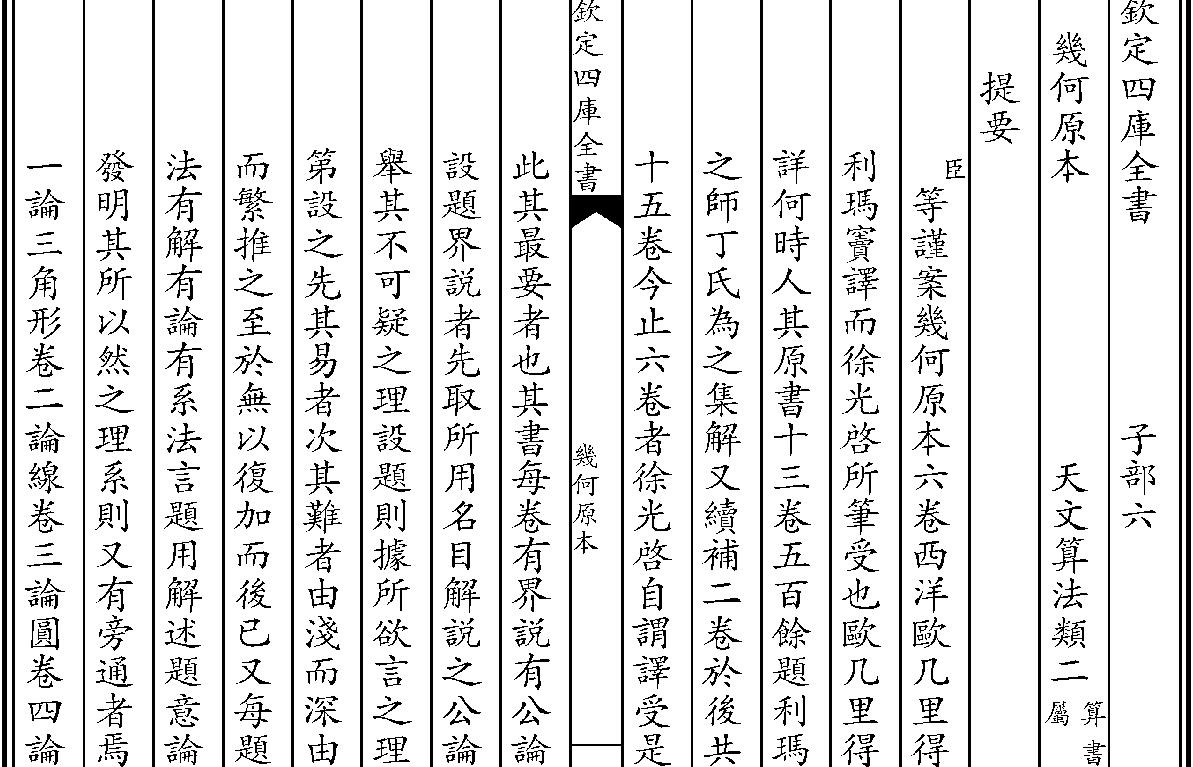 欽定四庫全書　子部六
幾何原本　天文算法類二算書屬
提要
臣等謹案幾何原本六卷西洋歐几里得
利瑪竇譯而徐光啓所筆受也歐几里得
詳何時人其原書十三卷五百餘題利瑪
之師丁氏為之集解又續補二卷於後共
十五卷今止六卷者徐光啓自謂譯受是
欽定四庫全書　幾何原本
此其最要者也其書每卷有界說有公論
設題界說者先取所用名目解說之公論
舉其不可疑之理設題則據所欲言之理
第設之先其易者次其難者由淺而深由
而繁推之至於無以復加而後已又每題
法有解有論有系法言題用解述題意論
發明其所以然之理系則又有旁通者焉
一論三角形卷二論線卷三論圓卷四論